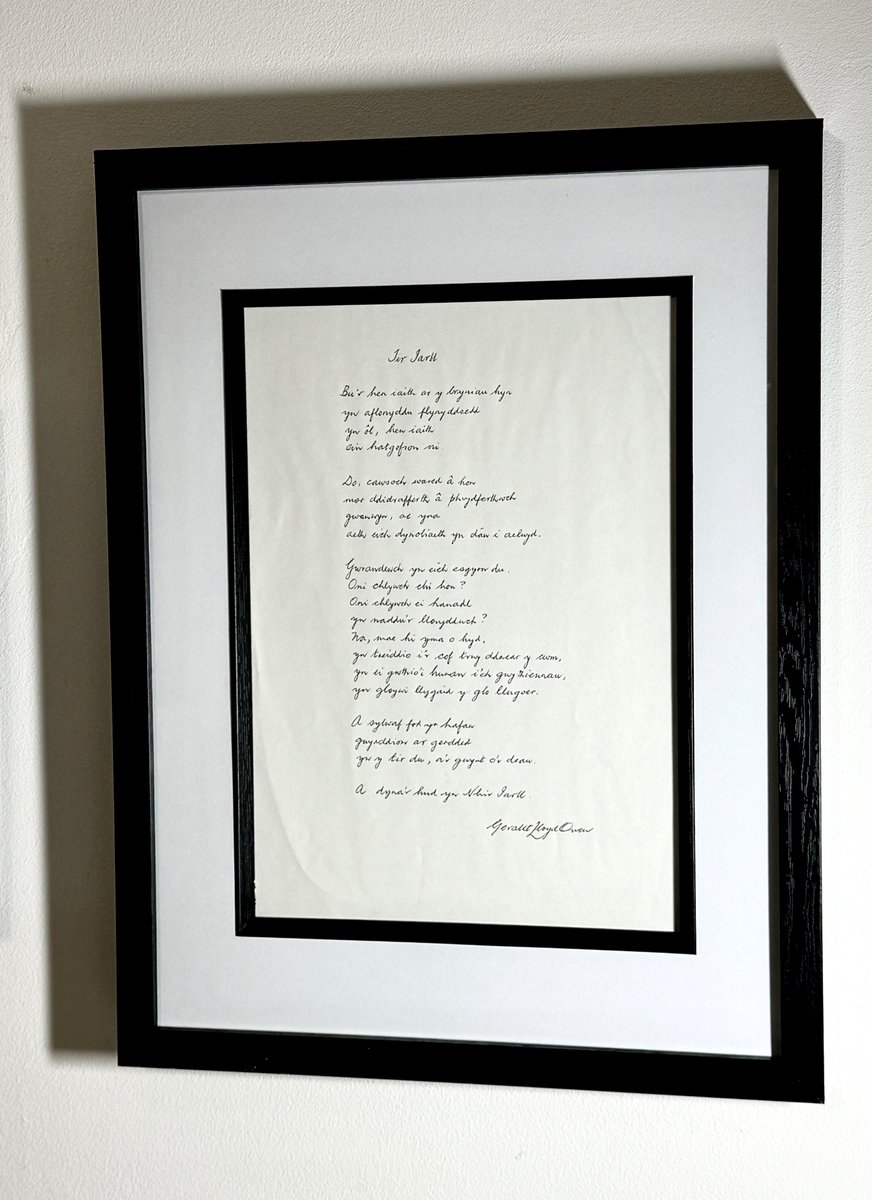 Tir Iarll
Bu'r hen iaith ar y bryniau hyn
yn aflonyddu flynyddoedd
yn ôl, hen iaith
ein hatgofion ni.
Do, cawsoch wared â hon
mor ddidrafferth â phrydferthwch
gwanwyn, ac yna
aeth eich dynoliaeth yn ddau i aelwyd.
Gwrandewch yn eich esgyrn du.
Oni chlywch chi hon?
Oni chlywch ei hanadl
yn naddu'r llonyddwch?
Na, mae hi yma o hyd,
yn treiddio i'r cof trwy ddaear y cwm,
yn ei gwthio'i hunan i'ch gwythiennau,
yn gloywi llygaid y glo llugoer.
A sylwaf fod yr hafau
gwyrddion ar gerdded
yn y tir du, a'r gwynt o'r deau.
A dyna'r hud yn Nhir Iarll.
Gerallt Lloyd Owen